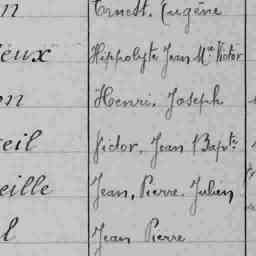 n Ernest, Eugène
ieux Hippolyte Jean M.ie Victor
on Henri, Joseph
eil Victor, Jean Bapt.te
eille Jean, Pierre, Julien
l Jean Pierre